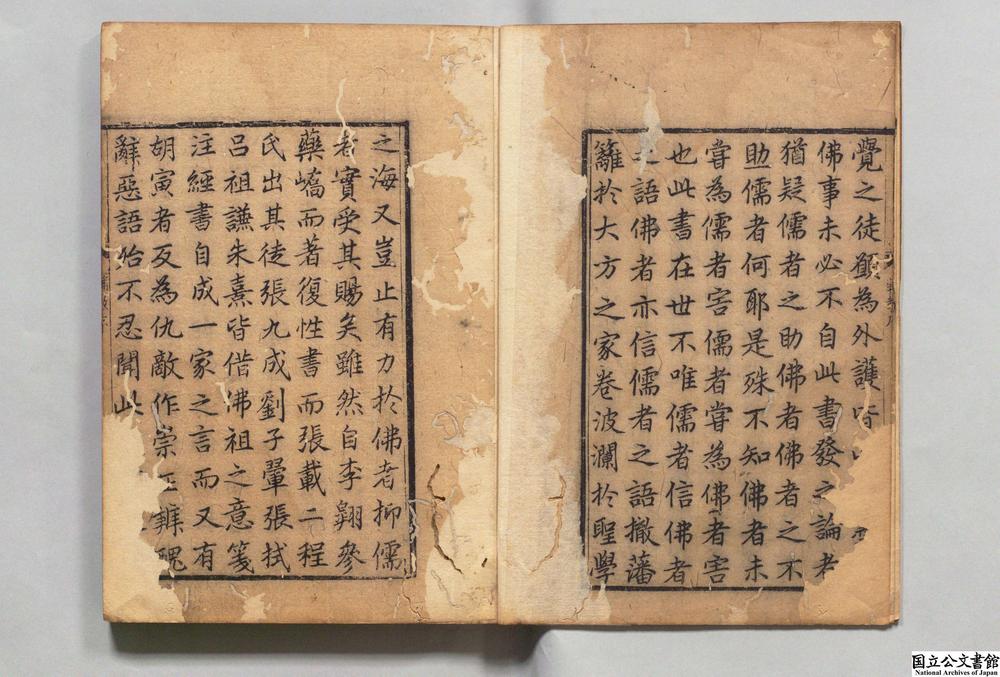 覺之徒願為外護
佛事未必不自此書發之論者
猶疑儒者之助佛者佛者之不
助儒者何耶是殊不知佛者未
嘗為儒者害儒者嘗為佛者害
也此書在世不唯儒者信佛者
之語佛者亦信儒者之語撤藩
籬於大方之家卷波瀾於聖學
之海又豈止有力於佛老抑儒
者實受其賜矣雖然自李翱參
藥嶠而著復性書而張載二程
氏出其徒張九成劉子翬張栻
呂祖謙朱熹皆借佛祖之意箋
注經書自成一家之言而又有
胡寅者反為仇敵作崇正辨醜
辭惡語殆不忍聞此
国立公文書館
National Archives of Japan